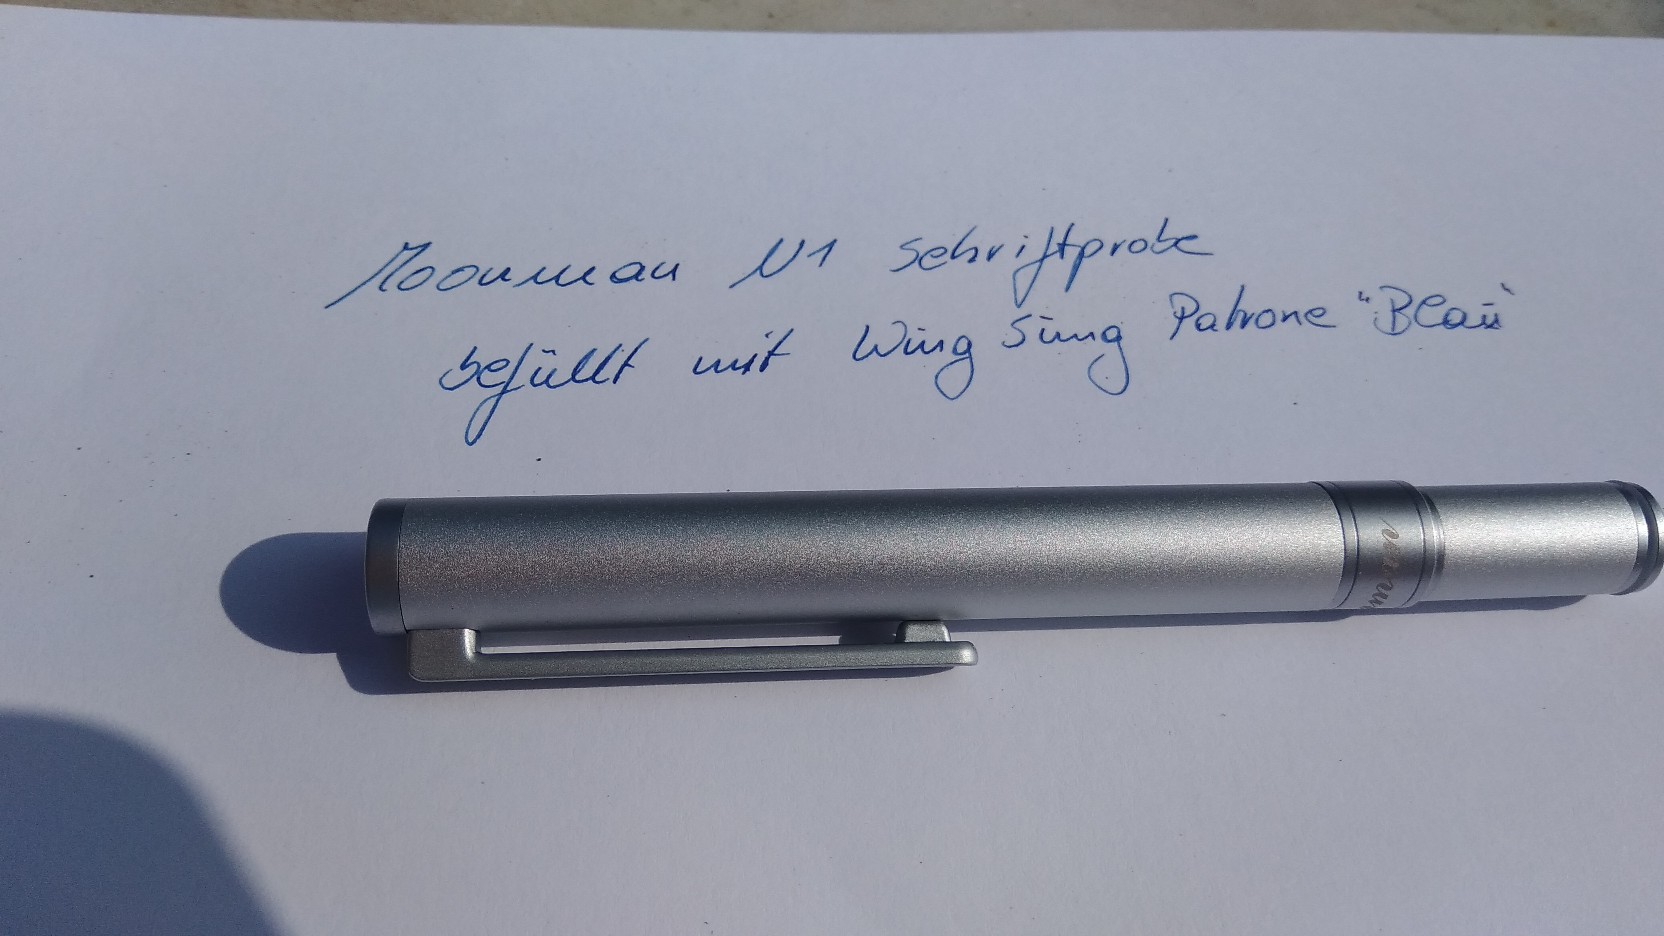 Moonman N1 Schriftprobe
befüllt mit Wing Sung Patrone "Blau"